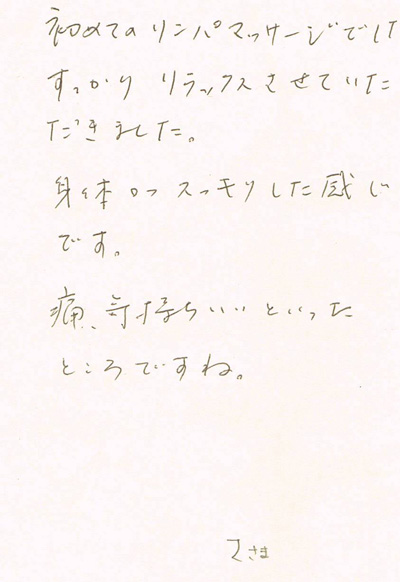 初めてのリンパマッサージでした
すっかりリラックスさせていた
だきました。
身体がスッキリした感じ
です。
痛、気持ちいいといった
ところですね。
さま